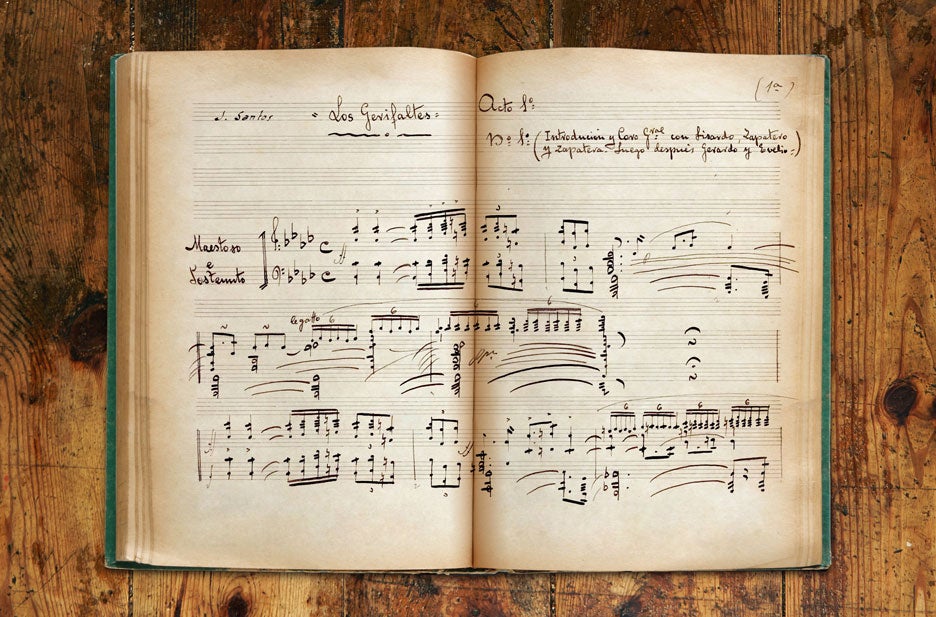 (1ª)
J. Santos
"Los Gerifaltes"
Acto 1º
Nº 1º (Introducion y Coro Gral con Lisardo, Zapatero
y Zapatera. Luego después Gerardo y Evelio.)
Maestoso
e
Sostenuto
3
legatto 6 6 6 6
3 3
6 6 6 6